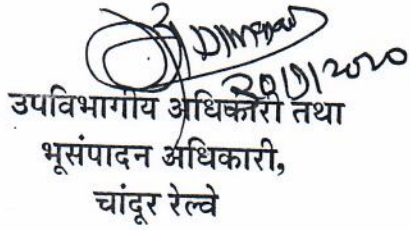 20/1/2020
उपविभागीय अधिकारी तथा
भूसंपादन अधिकारी,
चांदूर रेल्वे